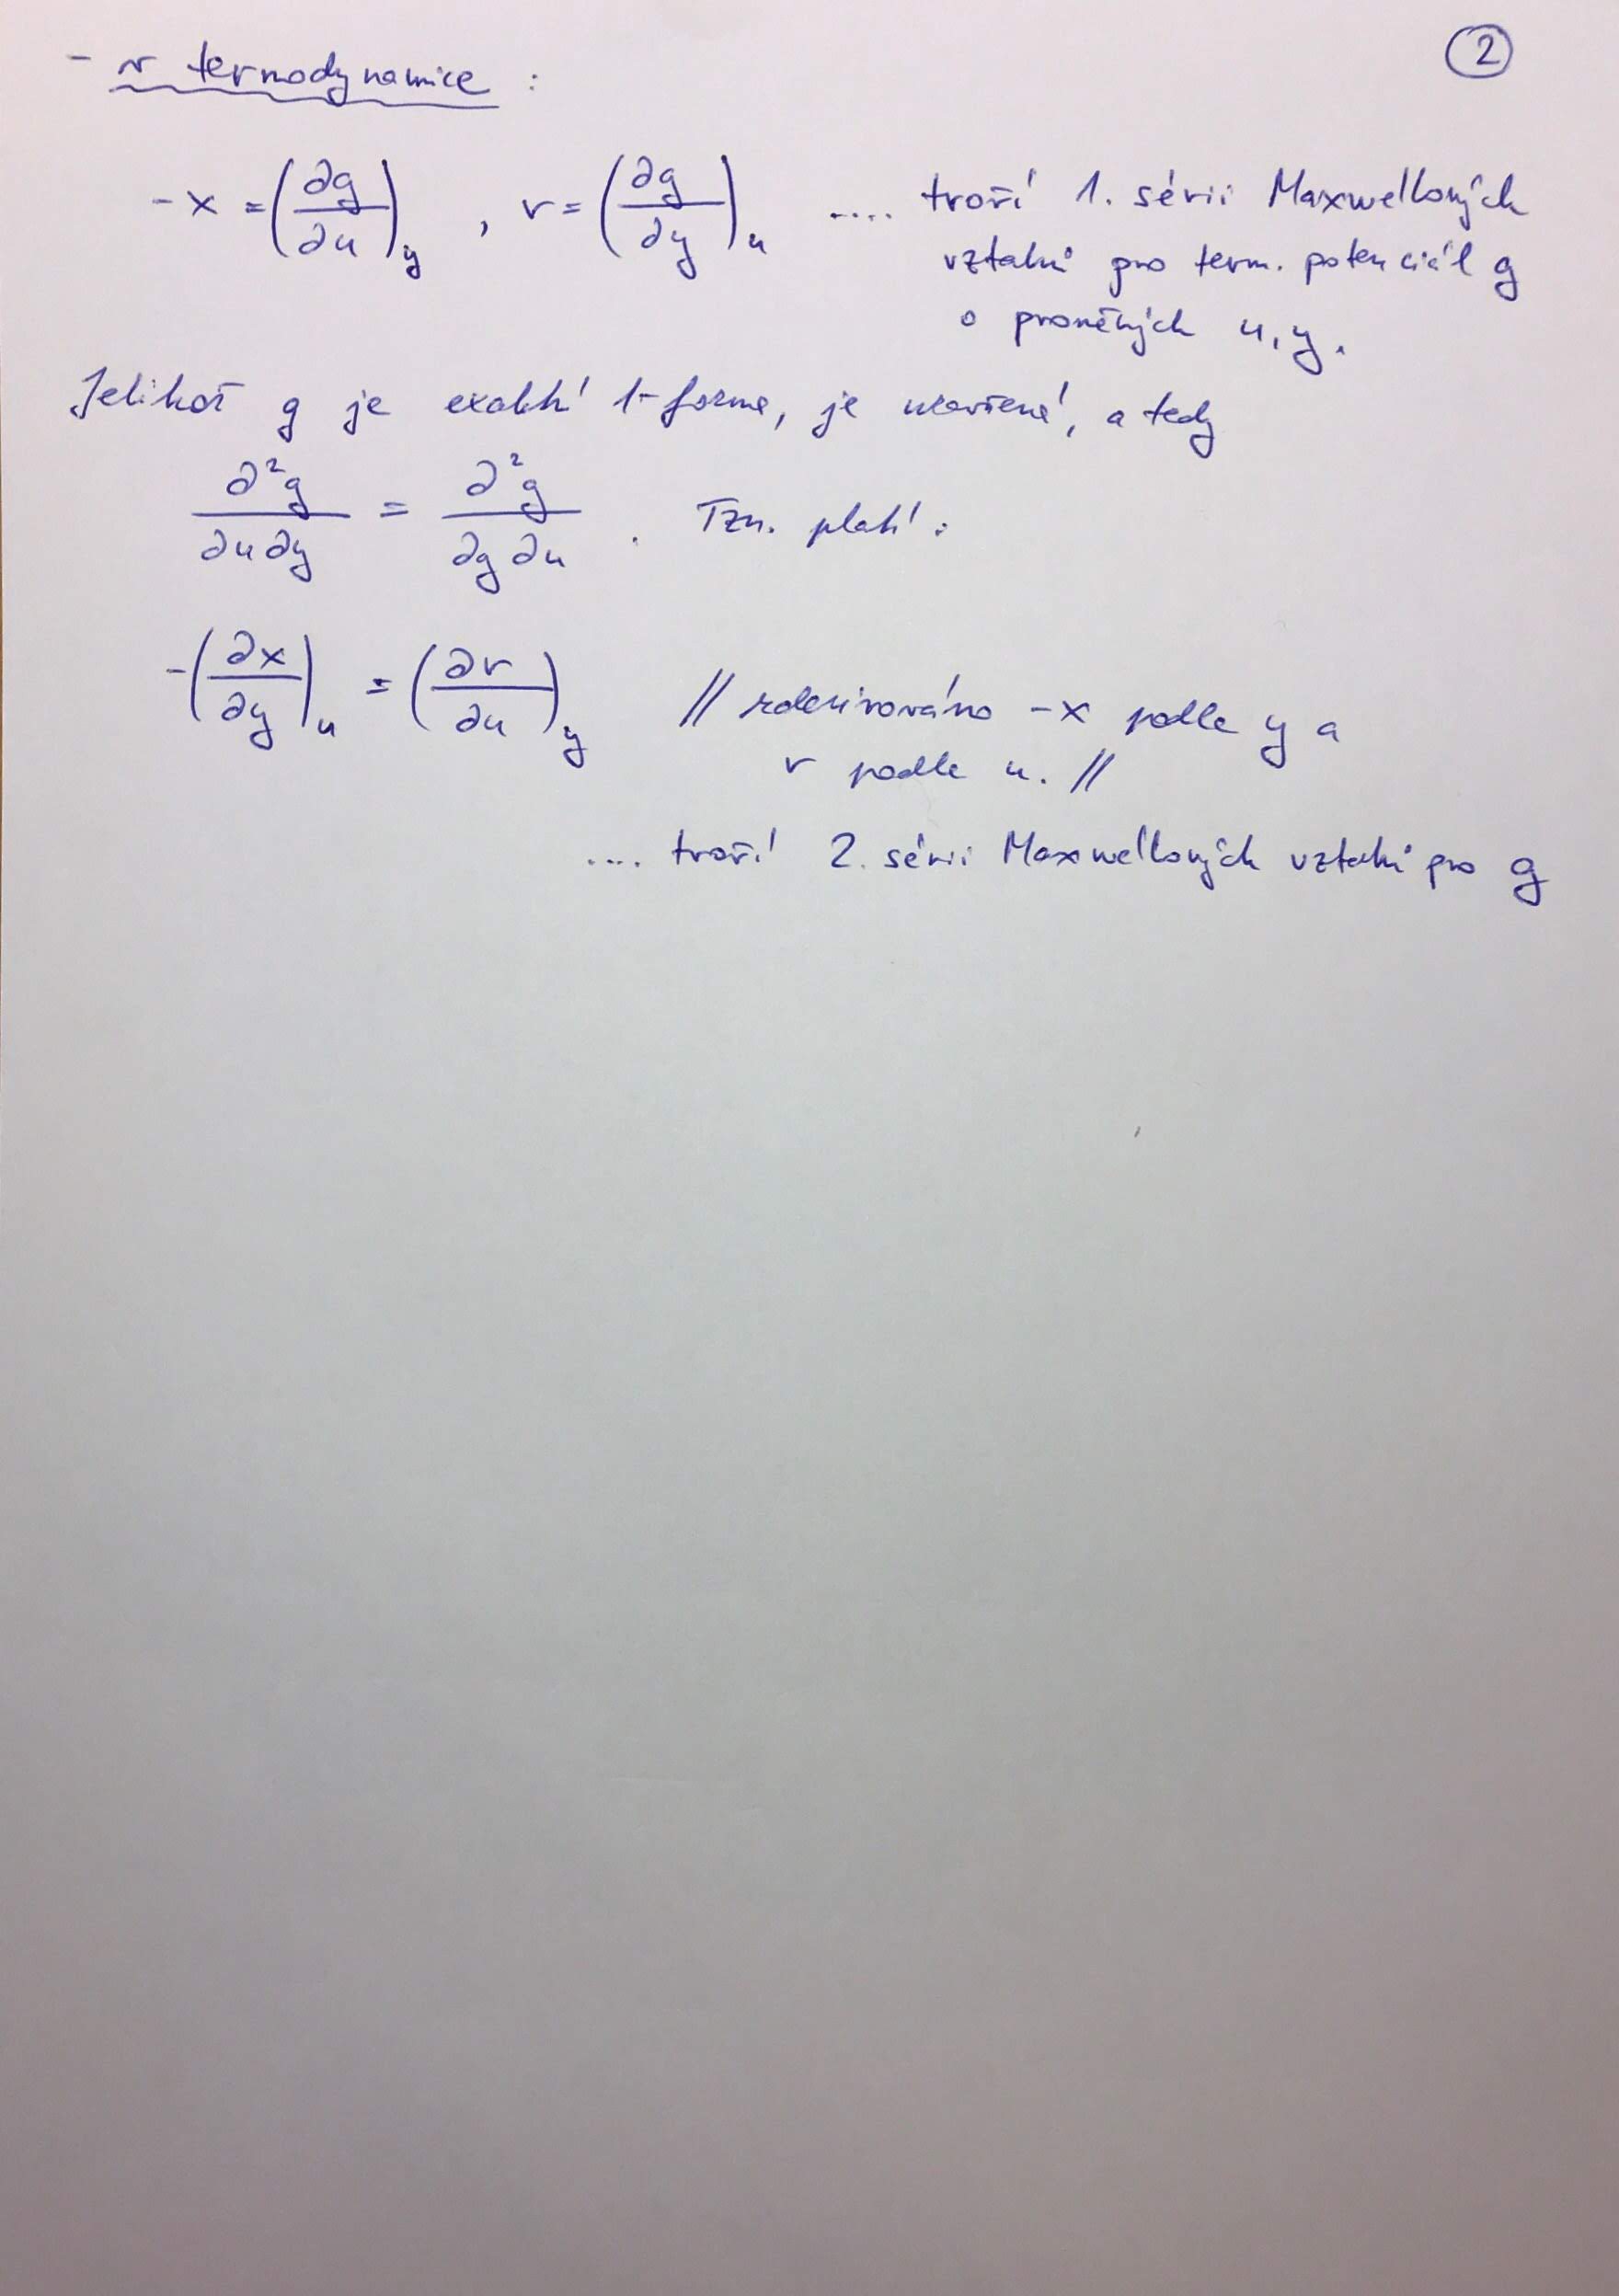 ②
- v termodynamice :
-x = (∂g/∂u)_y , v = (∂g/∂y)_u .... tvoří 1. sérii Maxwellových
vztahů pro term. potenciál g
o proměných u, y.
Jelikož g je exaktní 1-forma, je uzavřená, a tedy
∂²g/∂u∂y = ∂²g/∂y∂u . Tzn. platí :
-(∂x/∂y)_u = (∂v/∂u)_y // zderivováno -x podle y a
v podle u. //
.... tvoří 2. sérii Maxwellových vztahů pro g